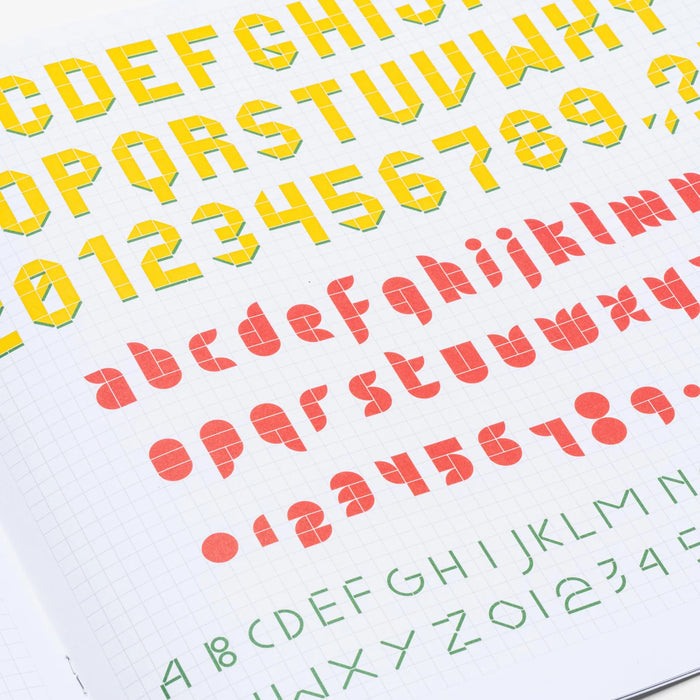 CDEFGHIJ
OPQRSTUVWXY
Z0123456789.,?
abcdefghijklmn
opqrstuvwxy
0123456789.
ABCDEFGHIJKLMN
WXYZ012345